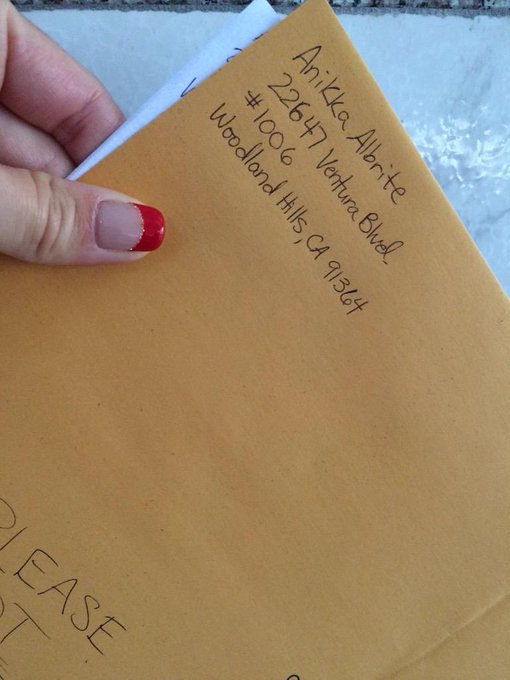 Anikka Albrite
22647 Ventura Blvd.
#1006
Woodland Hills, CA 91364
PLEASE